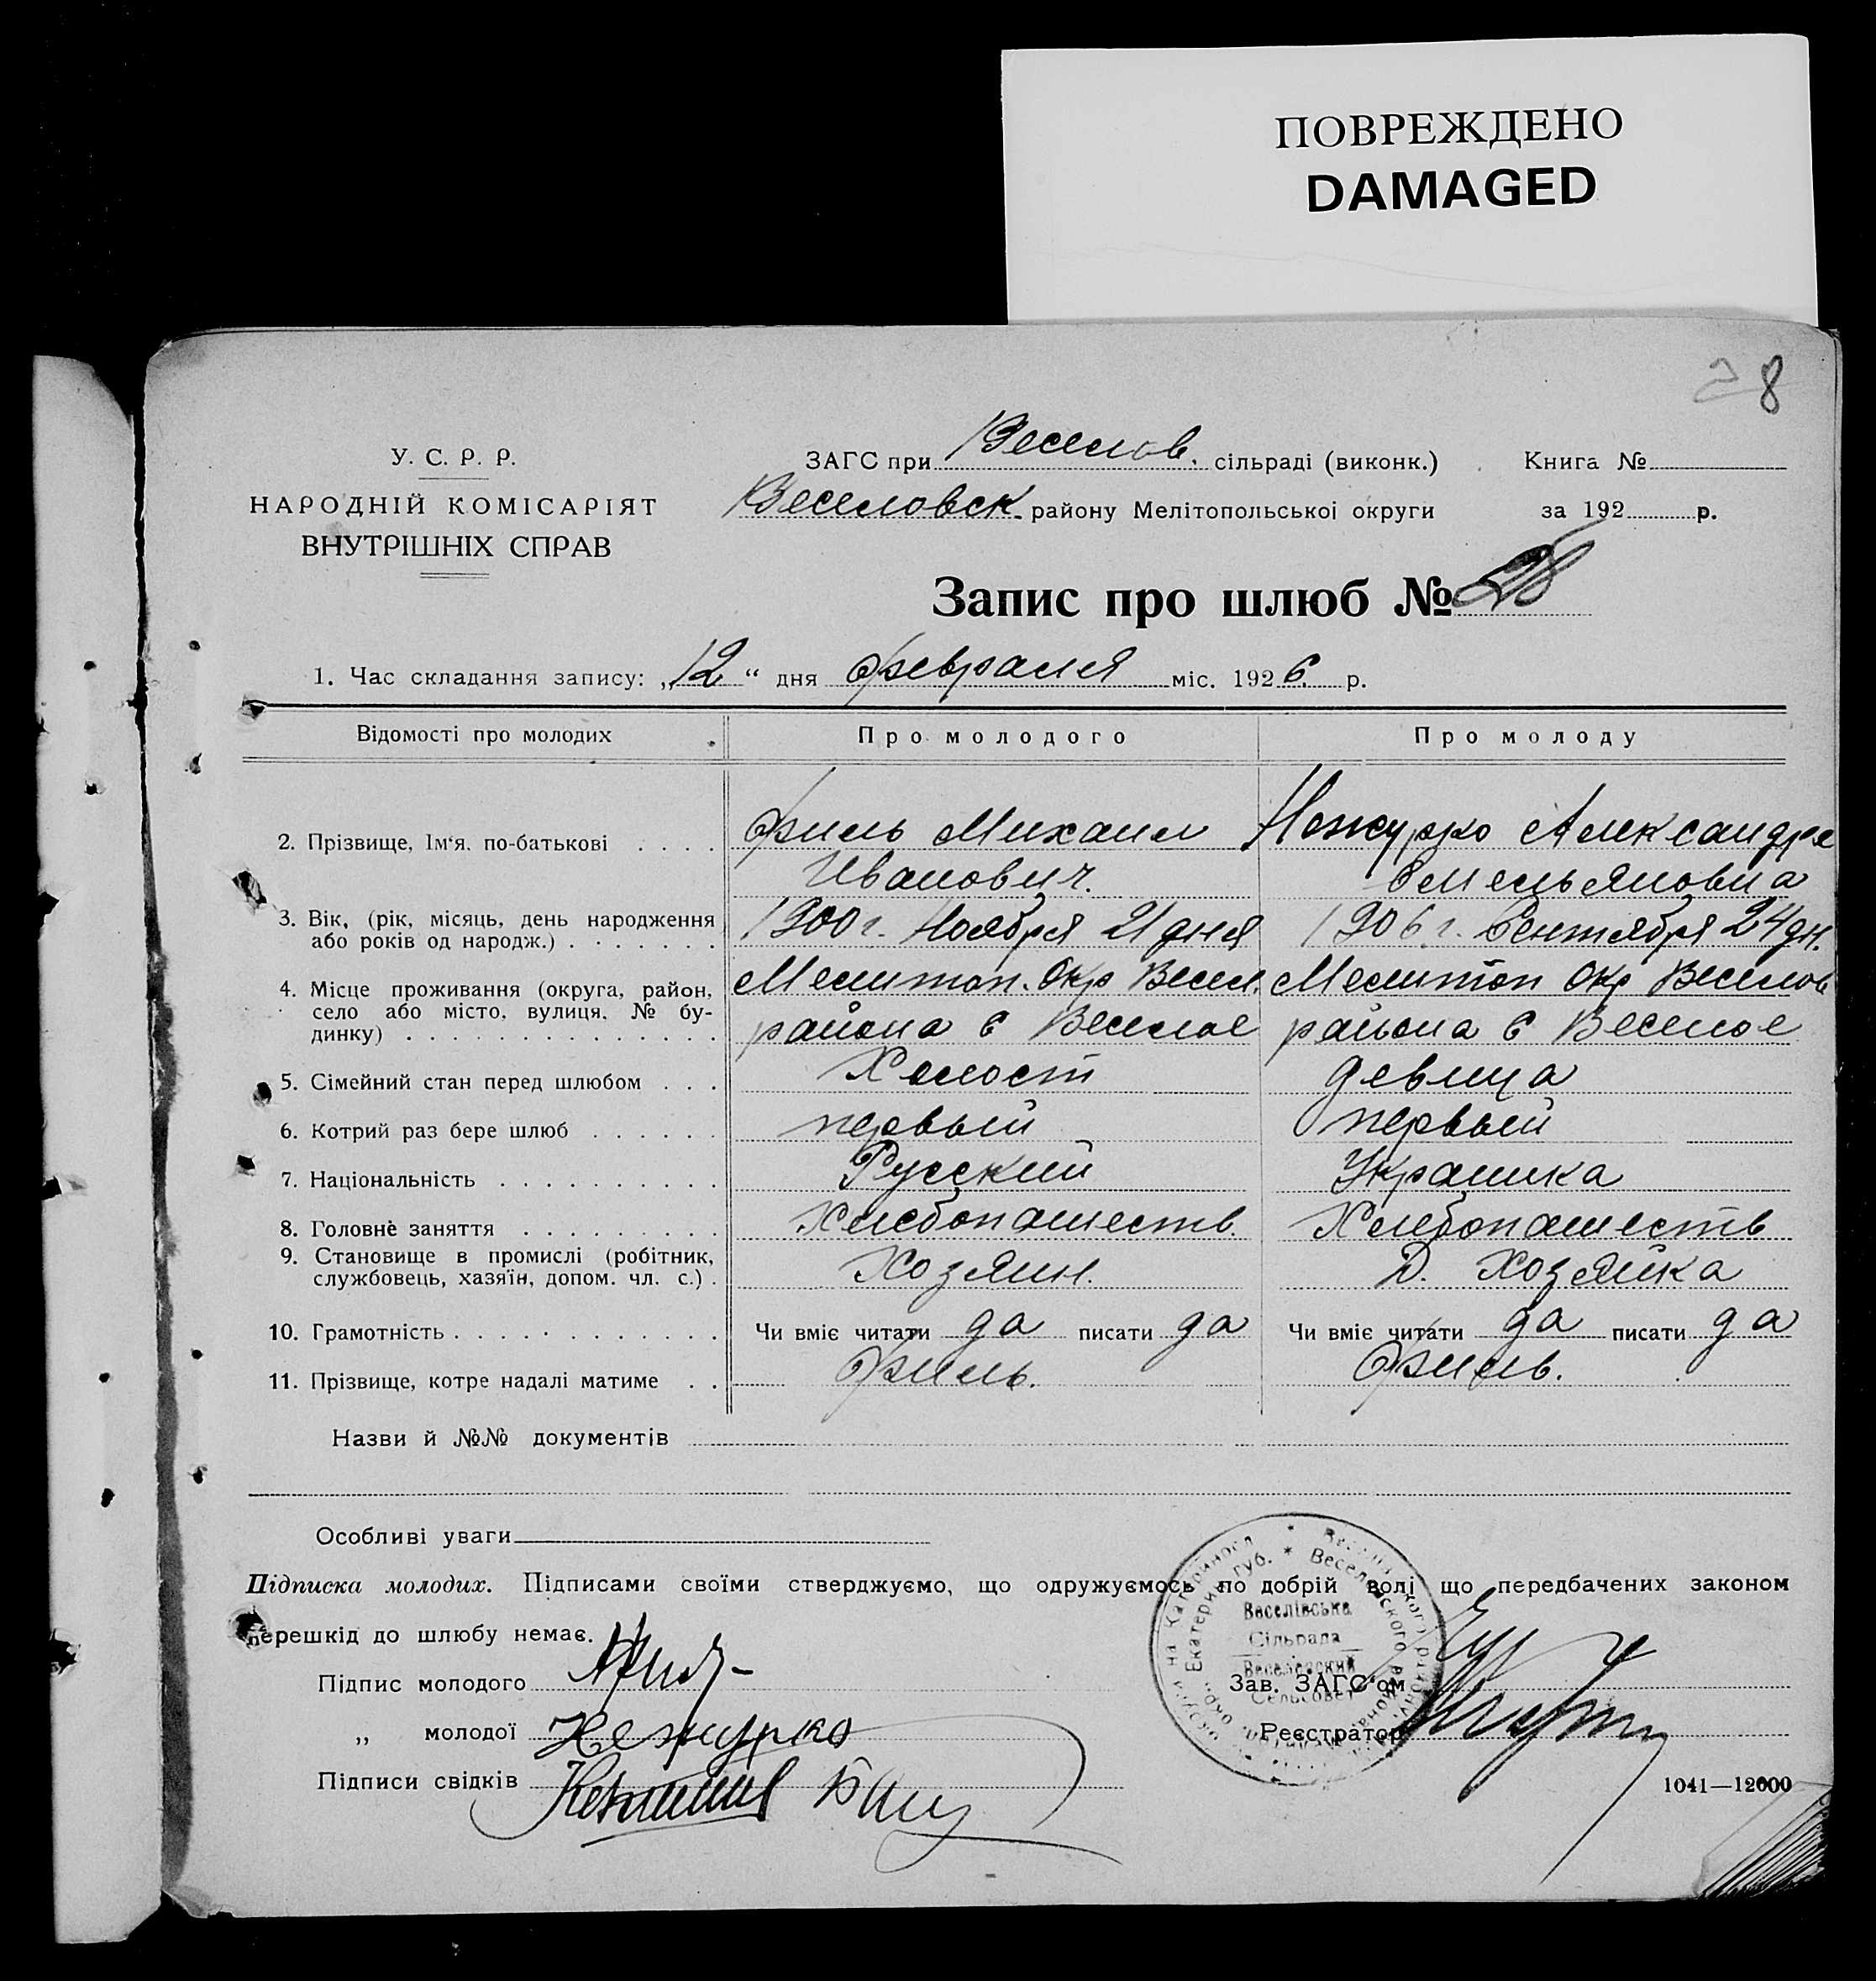 ПОВРЕЖДЕНО
DAMAGED
28
У. С. Р. Р.
НАРОДНІЙ КОМІСАРІЯТ
ВНУТРІШНІХ СПРАВ
ЗАГС при Веселов. сільраді (виконк.)
Веселовск. району Мелітопольської округи
Книга №
за 192 р.
Запис про шлюб № 28
1. Час складання запису: „12“ дня февраля міс. 1926 р.
Відомості про молодих
Про молодого
Про молоду
2. Прізвище, Ім'я. по-батькові
Филь Михаил
Иванович.
Нежурко Александра
Емельяновна
3. Вік, (рік, місяць, день народження
або років од народж.)
1900 г. Ноября 21 дня
1906 г. Сентября 24 дн.
4. Місце проживання (округа, район,
село або місто, вулиця, № бу-
динку)
Мелитоп. Окр Весел.
района с Веселое
Мелитоп Окр Веселов
района с Веселое
5. Сімейний стан перед шлюбом
Холост
девица
6. Котрий раз бере шлюб
первый
первый
7. Національність
Русский
Украинка
8. Головнѐ заняття
Хлебопашеств.
Хлебопашеств
9. Становище в промислі (робітник,
службовець, хазяїн, допом. чл. с.)
Хозяин.
Д. Хозяйка
10. Грамотність
Чи вміє читати да писати да
Чи вміє читати да писати да
11. Прізвище, котре надалі матиме
Филь.
Филь.
Назви й №№ документів
Особливі уваги
Підписка молодих. Підписами своїми стверджуємо, що одружуємось по добрій волі що передбачених законом
перешкід до шлюбу немає.
Веселівська
Сільрада
Веселовский
Сельсовет
Підпис молодого
„ молодої Нежурко
Підписи свідків
Зав. ЗАГС'ом
Реєстратор
1041—12000